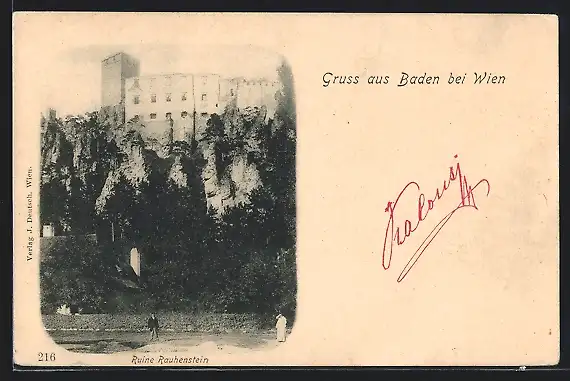 Gruss aus Baden bei Wien
Verlag J. Deutsch, Wien.
216
Ruine Rauhenstein